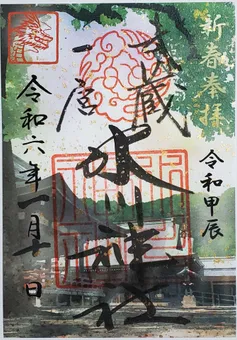 新春奉拝
令和甲辰
武蔵
一宮
氷川神社
令和六年一月十一日